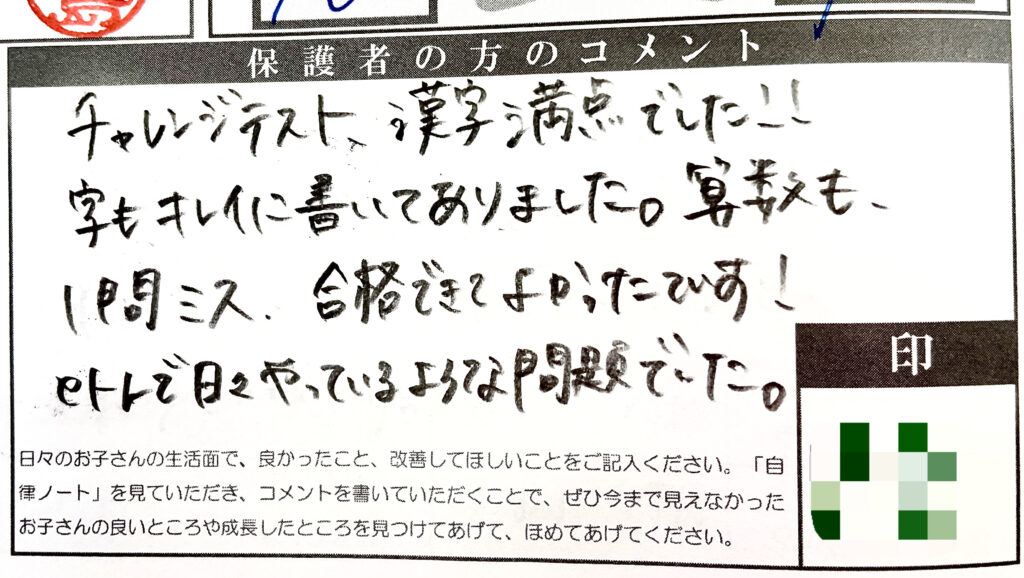 保護者の方のコメント
チャレンジテスト、漢字満点でした!!
字もキレイに書いてありました。算数も、
1問ミス、合格できてよかったです!
eトレで日々やっているような問題でした。
印
日々のお子さんの生活面で、良かったこと、改善してほしいことをご記入ください。「自
律ノート」を見ていただき、コメントを書いていただくことで、ぜひ今まで見えなかった
お子さんの良いところや成長したところを見つけてあげて、ほめてあげてください。